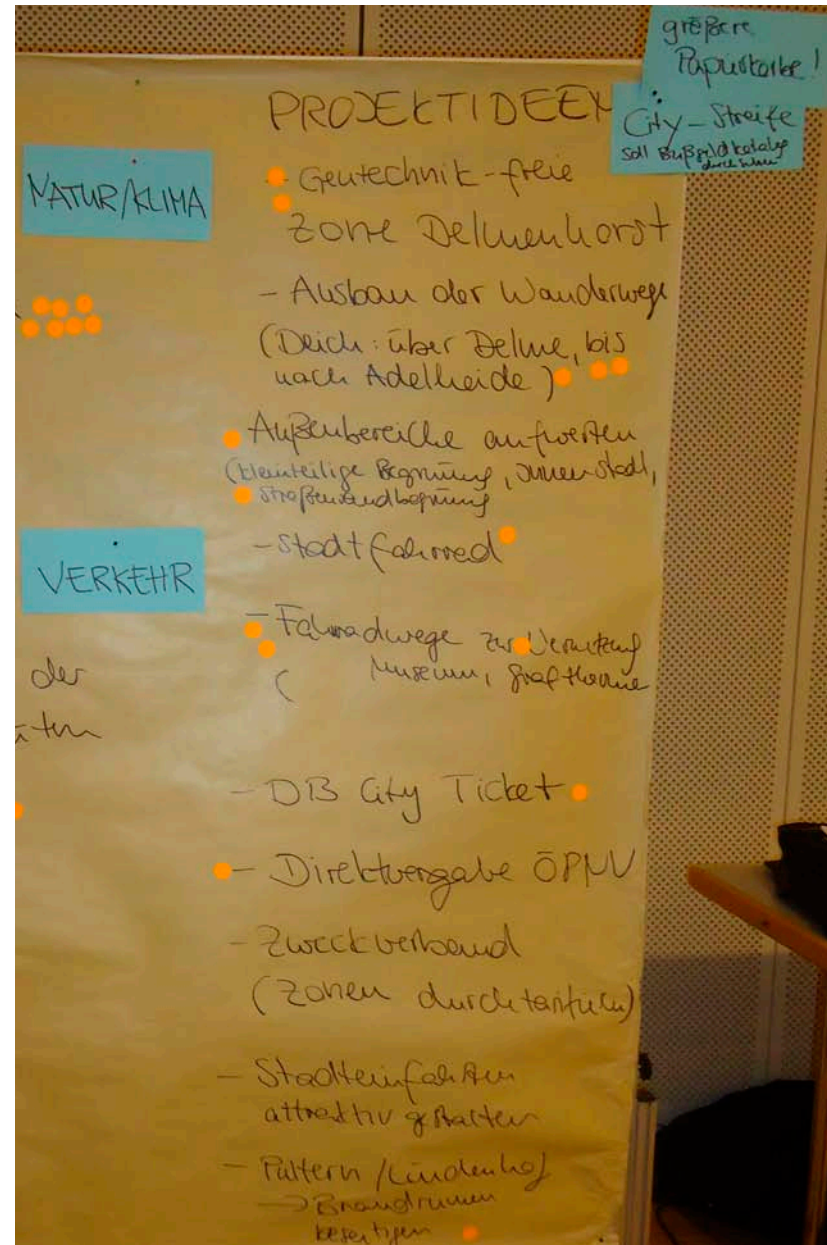 größere
Papierkörbe!
City-Streife
soll Bußgeldkatalog
PROJEKTIDEEN
NATUR/KLIMA
- Gentechnik-freie
Zone Delmenhorst
- Ausbau der Wanderwege
(Deich: über Delme, bis
nach Adelheide)
- Außenbereiche aufwerten
(kleinteilige Begrünung, Innenstadt,
Straßenrandbegrünung
- Stadtfahrrad
VERKEHR
- Fahrradwege zur Vernetzung
( Museum, Graftherme
der
- DB City Ticket
- Direktvergabe ÖPNV
- Zweckverband
(Zonen durchtarifieren)
- Stadteinfahrten
attraktiv gestalten
/Lindenhof
-> Brandruinen
beseitigen